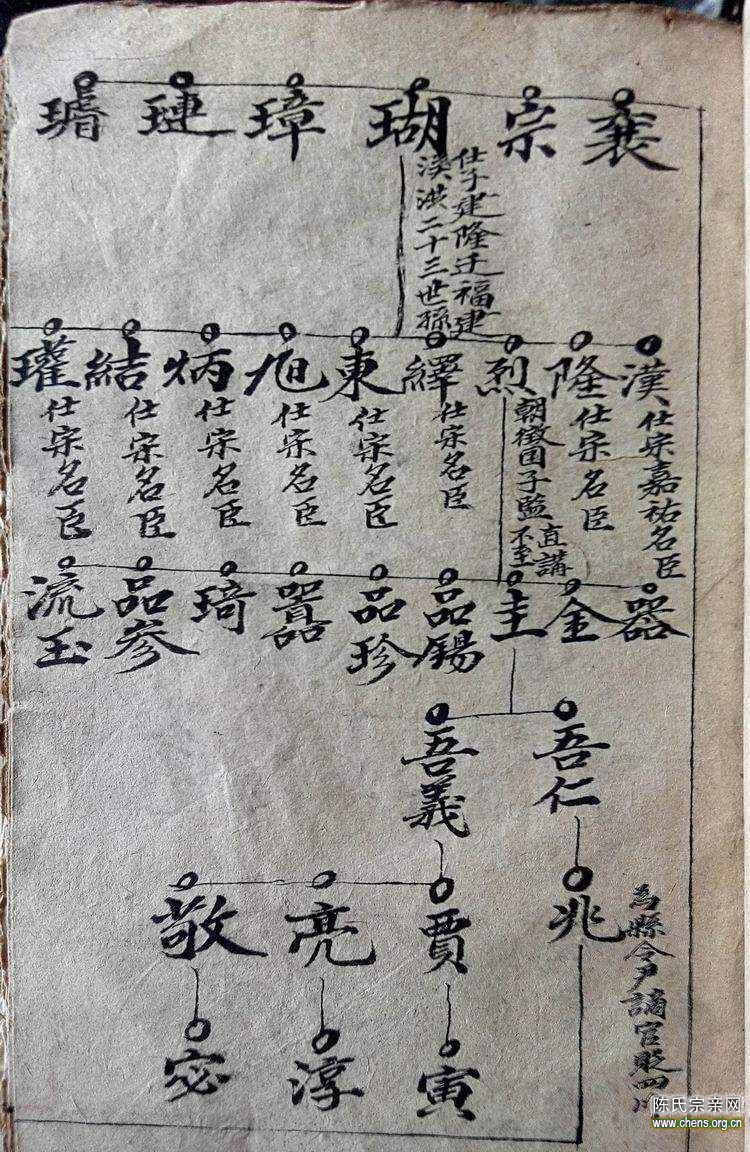 裴 宗 瑚 璋 璉 瑨
仕子建隆迁福建
漢洪二十三世孫
漢 隆 烈 繹 東 旭 炳 結 瓘
仕宗嘉祐名臣
仕宗名臣
朝徴国子監直講不至
仕宗名臣
仕宗名臣
仕宗名臣
仕宗名臣
仕宗名臣
仕宗名臣
器 金 圭 品錫 品珍 嚣 琦 品參 流玉
吾仁 吾義
兆 賈 亮 敬
寅 淳 宓
為縣令
謫官
陈氏宗亲网
www.chens.org.cn